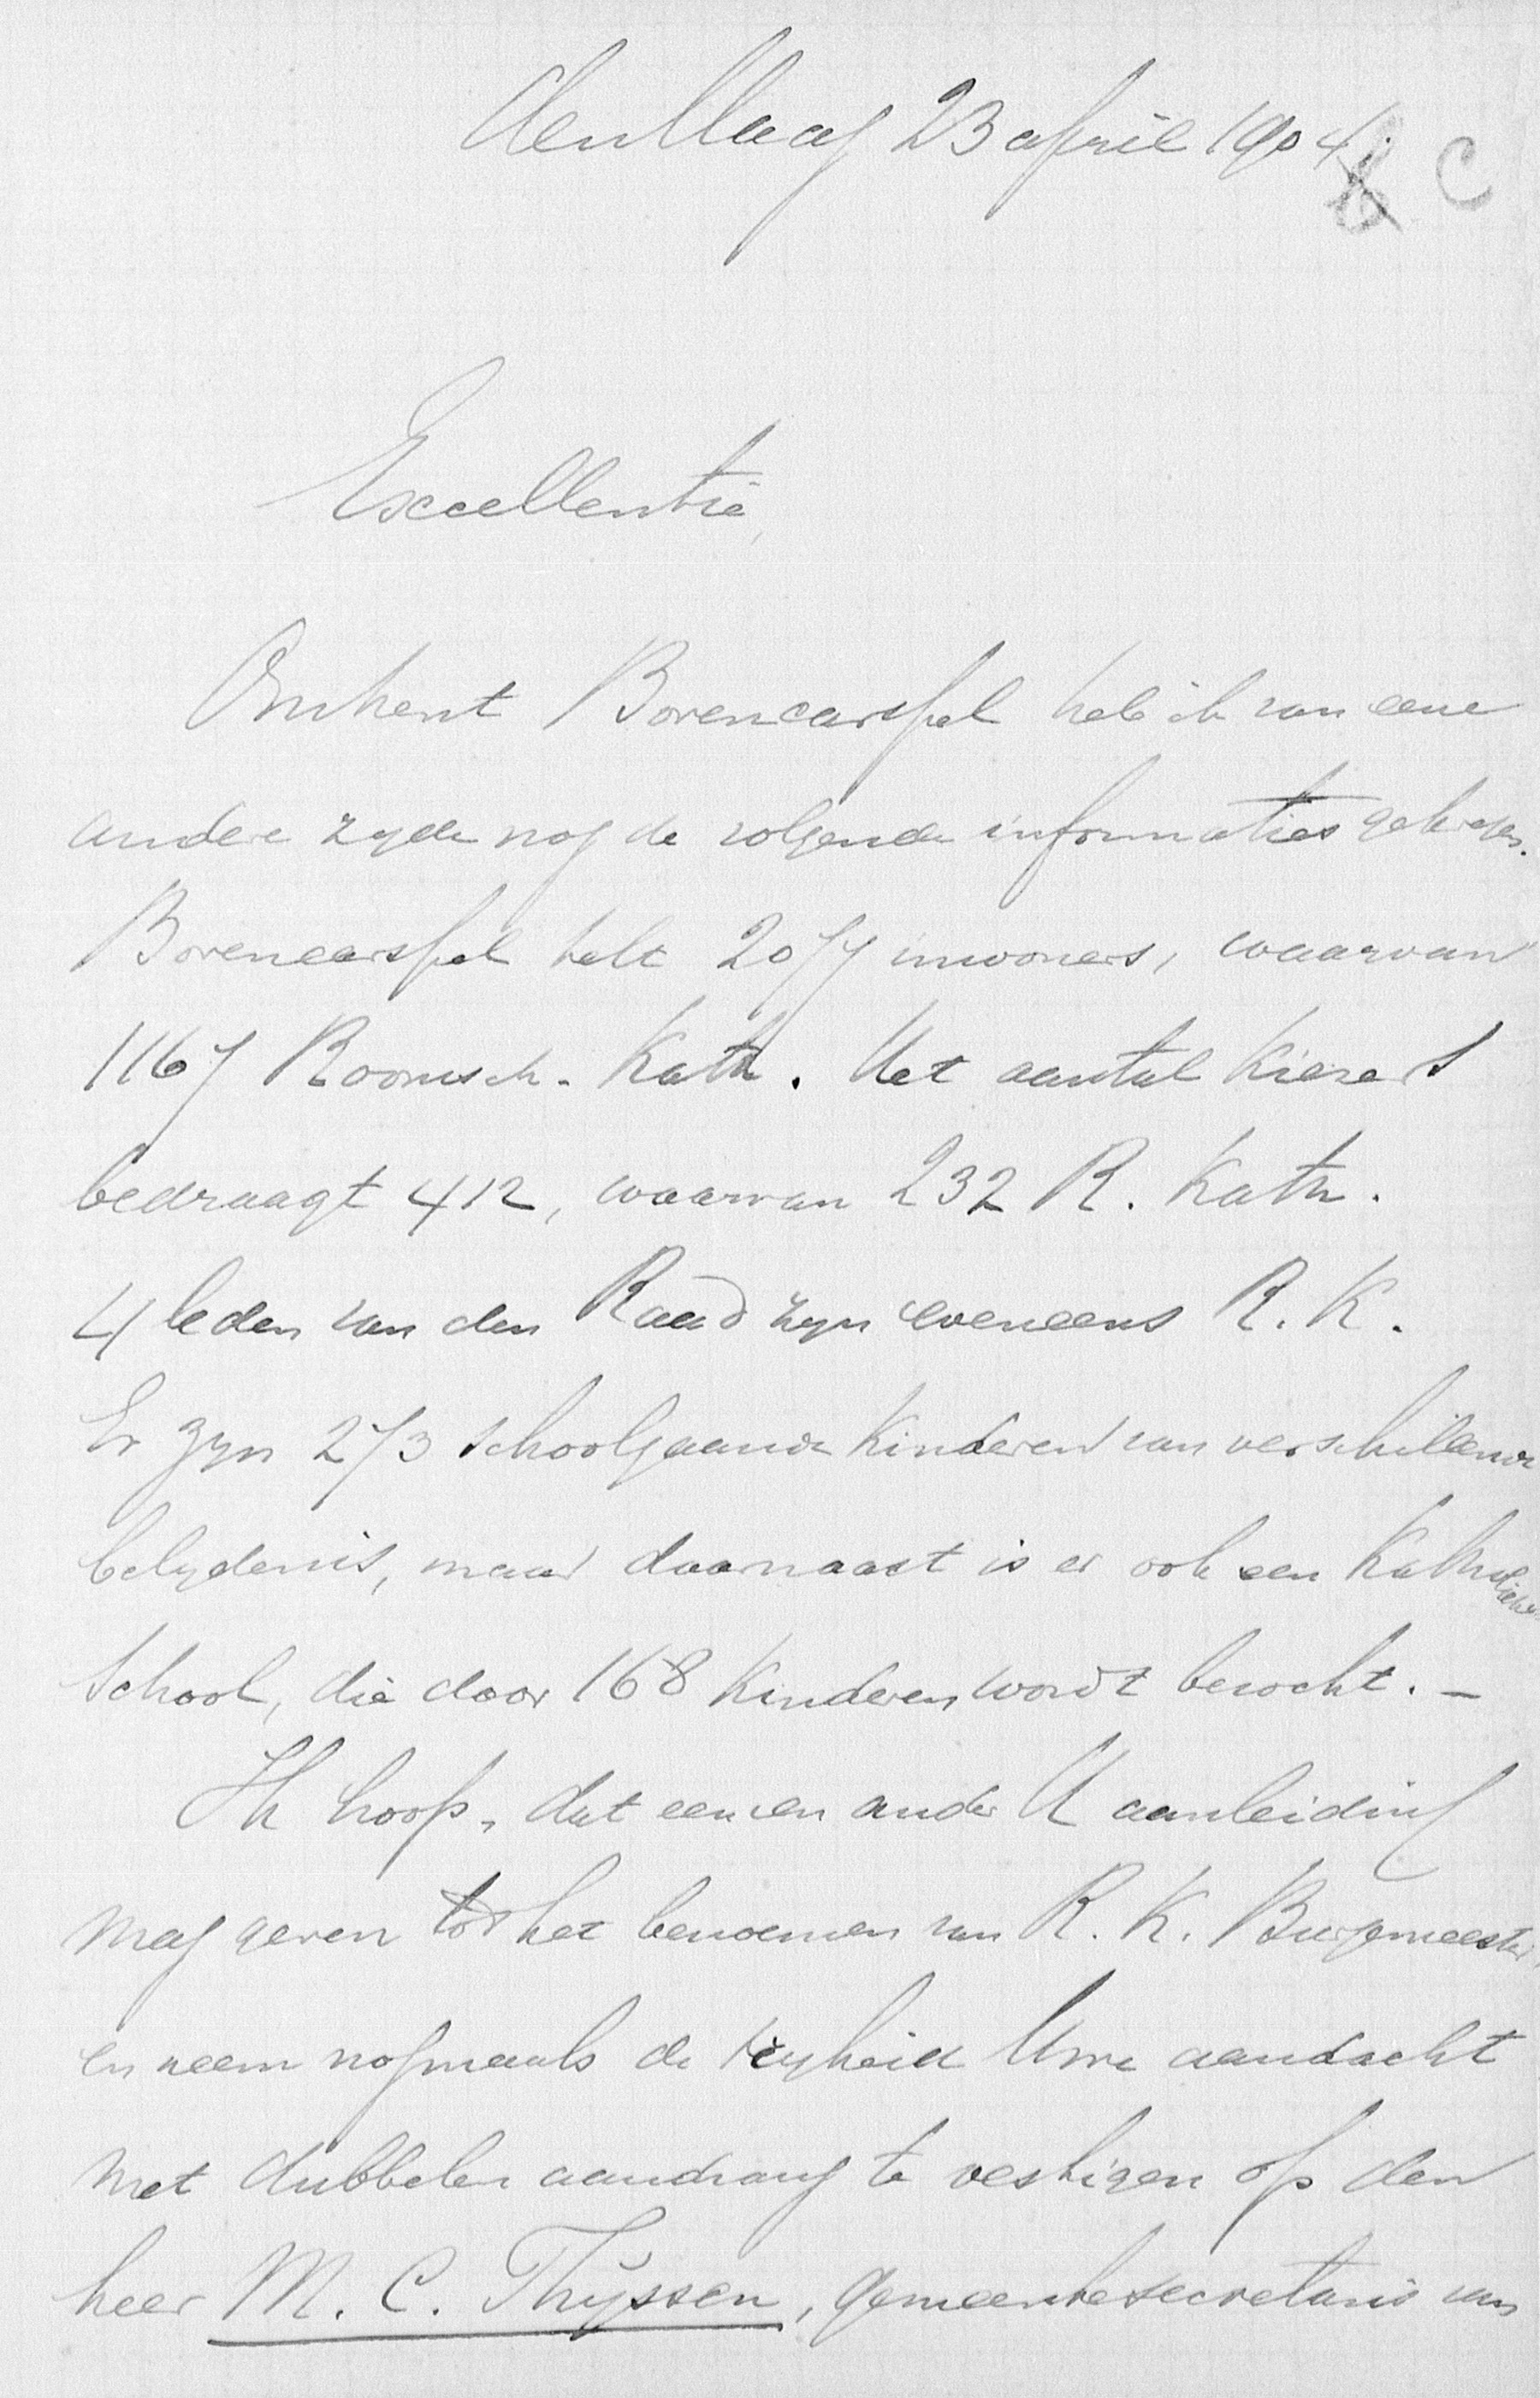 den Haag 23 april 1904.
C
Excellentie,
Omtrent Bovencarspel heb ik van eene
andere zyde nog de volgende informaties gekregen.
Bovencarspel telt 2077 inwoners, waarvan
1167 Roomsch-Kath. Het aantal Kiezers
bedraagt 412, waarvan 232 R. Kath.
4 leden van den Raad zyn eveneens R. K.
Er zyn 273 schoolgaande Kinderen van verschillende
belydenis, maar daarnaast is er ook een Katholieke
School, die door 168 Kinderen wordt bezocht. –
Ik hoop, dat een en ander U aanleiding
mag geven tot het benoemen van R. K. Burgemeester
en neem nogmaals de vryheid Uwe aandacht
met dubbelen aandrang te vestigen op den
heer M. C. Thijssen, gemeentesecretaris van